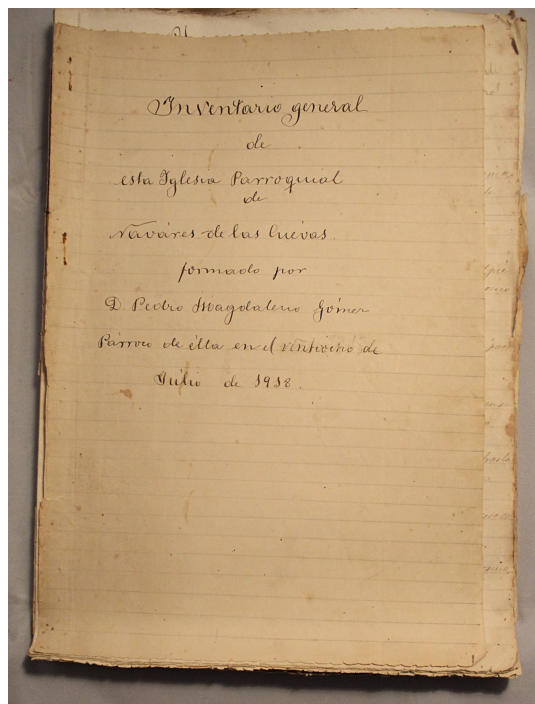 Inventario general
de
esta Iglesia Parroquial
de
Naváres de las Cuevas.
formado por
D. Pedro Magdaleno Gómez
Párroco de élla en el veintiocho de
Júlio de 1918.